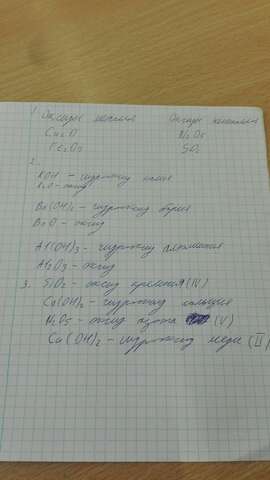 1. Оксиды металла Оксиды неметалла
Cu2O N2O5
Fe2O3 SO2
2.
KOH - гидроксид калия
K2O - оксид
Ba(OH)2 - гидроксид бария
BaO - оксид
Al(OH)3 - гидроксид алюминия
Al2O3 - оксид
3. SiO2 - оксид кремния (IV)
Ca(OH)2 - гидроксид кальция
N2O5 - оксид азота (V)
Cu(OH)2 - гидроксид меди (II)